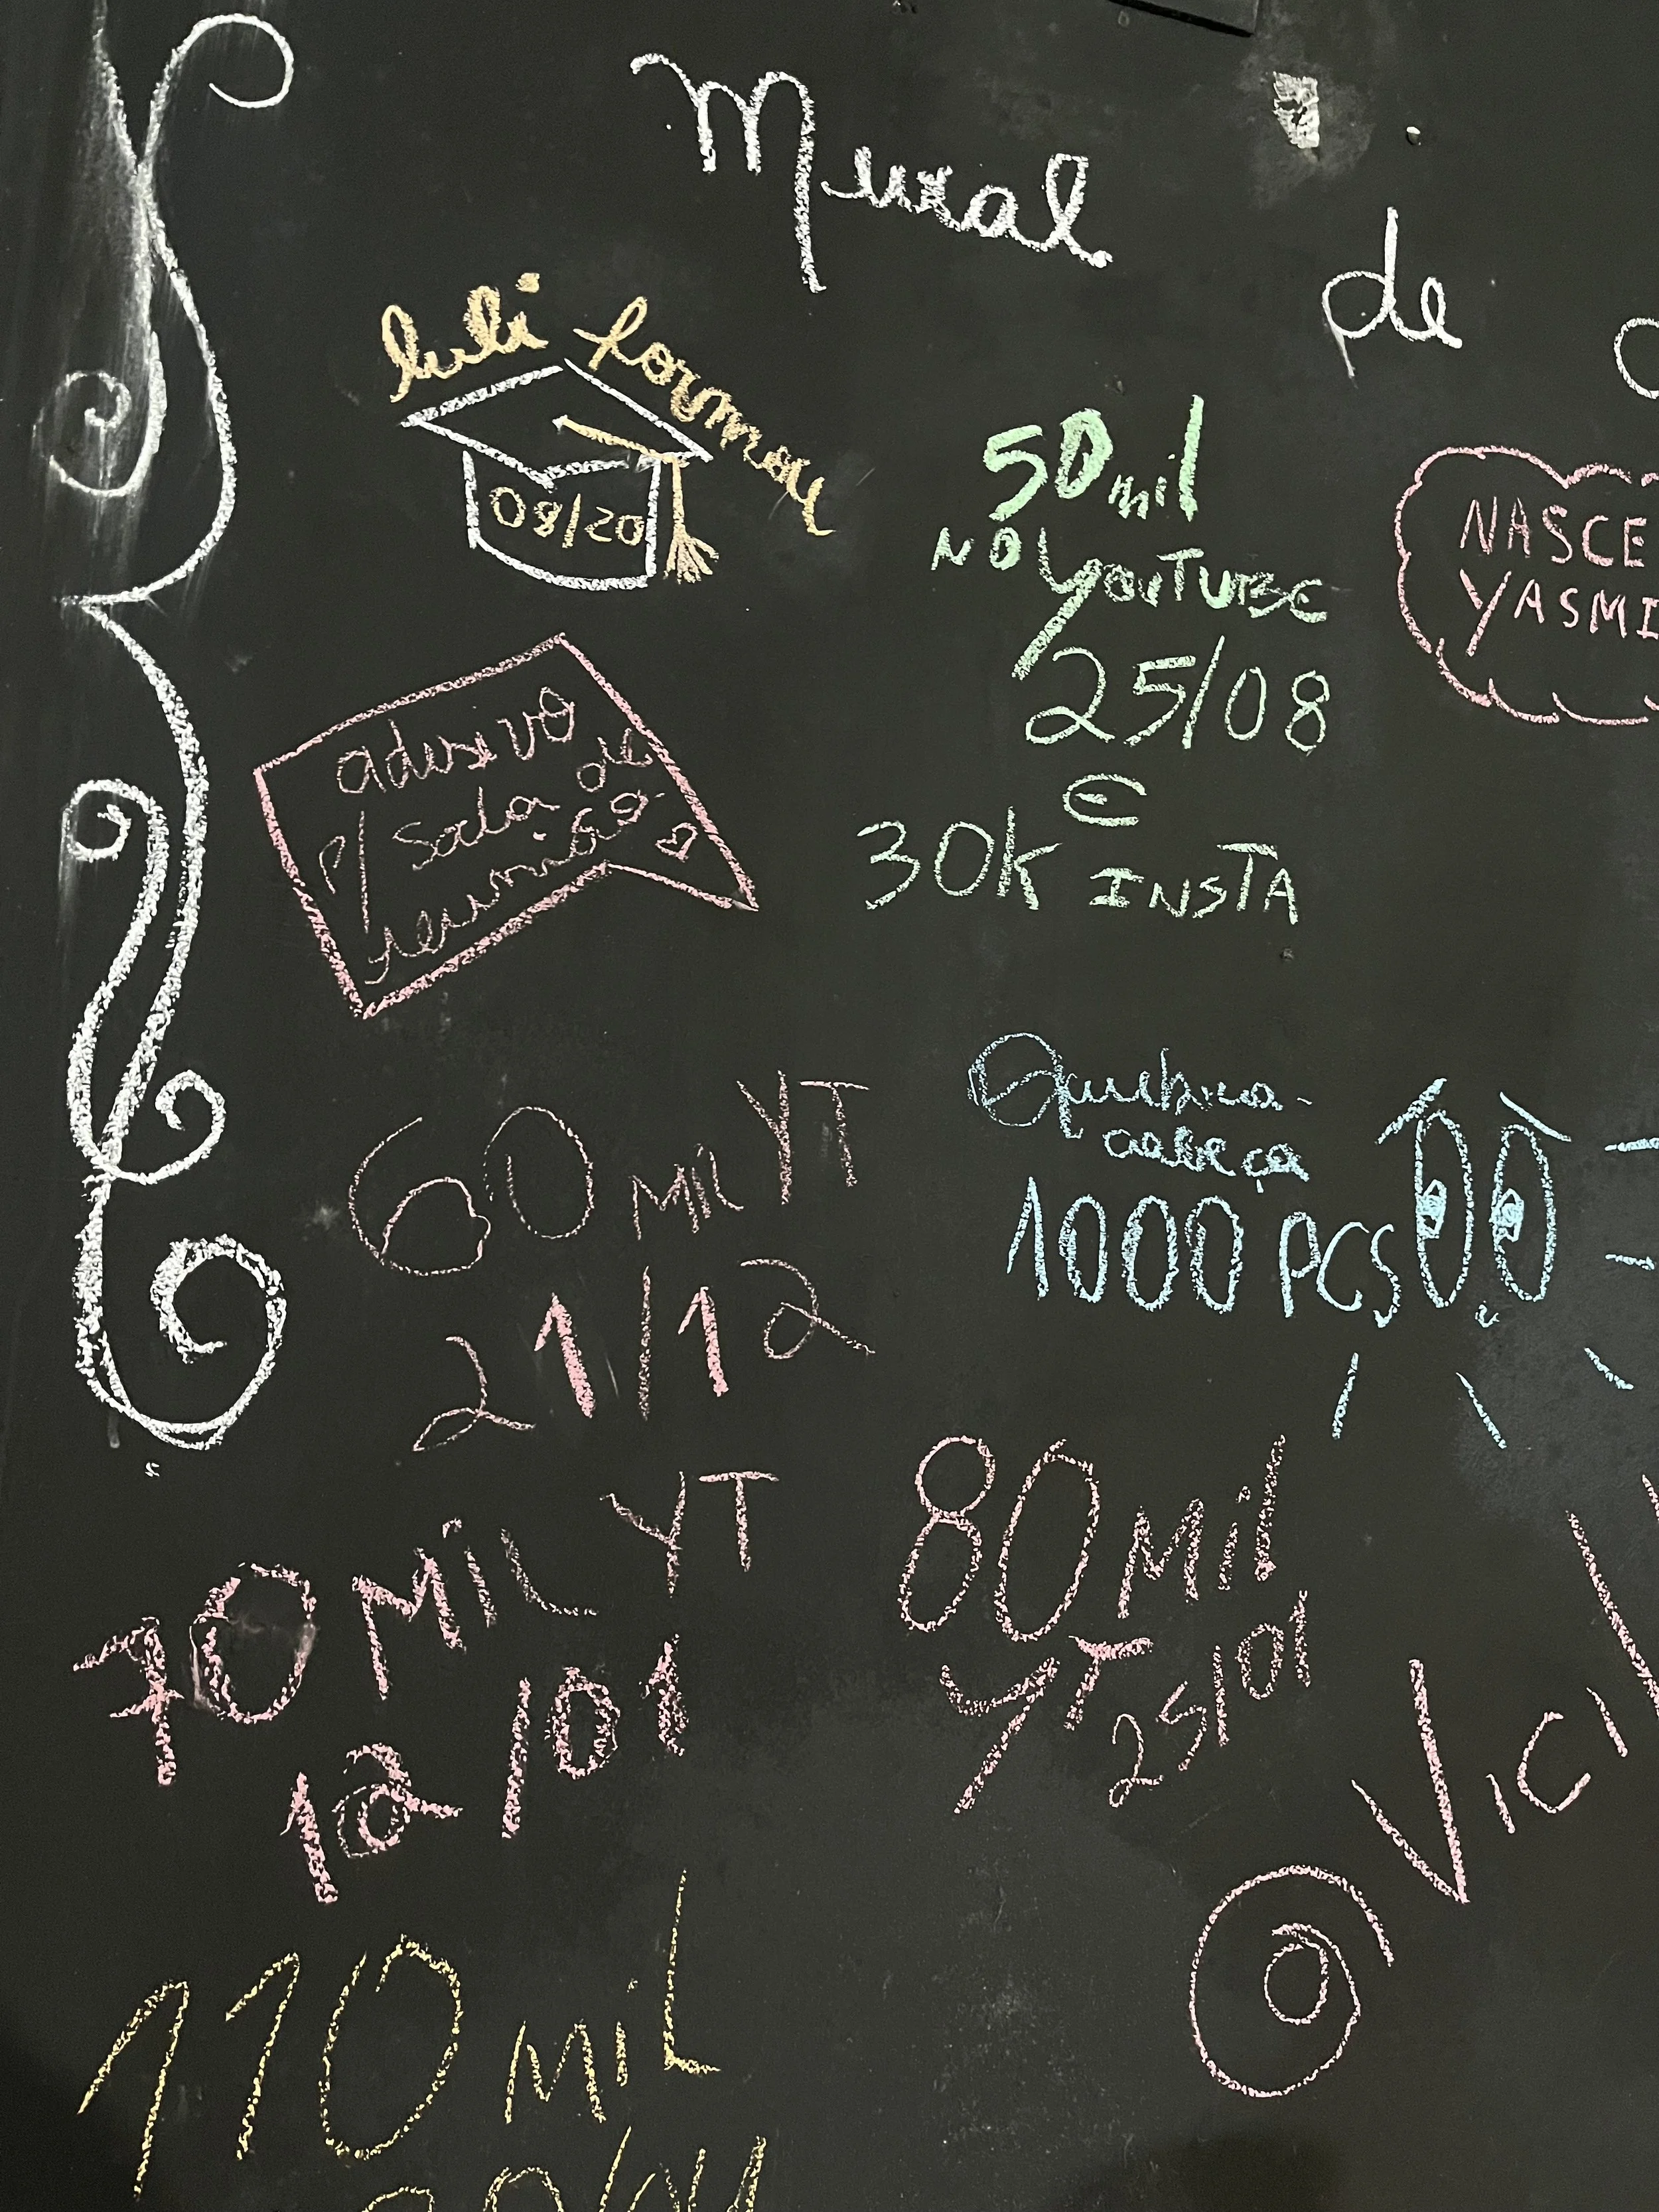 Mural de
Luli formou
08/20
50 mil
NO YOUTUBE
25/08
E
30K INSTA
NASCE
YASMI
adesivo
p/ sala de
reunião
60 MIL YT
21/12
Quebra-
cabeça
1000 PCS
70 MIL YT
12/01
80 Mil
YT 25/01
VICI
110 MIL